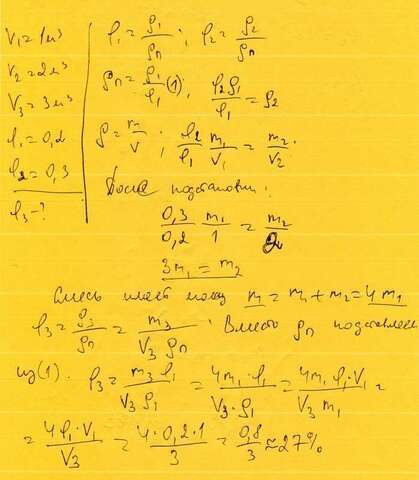 V₁ = 1м³
V₂ = 2м³
V₃ = 3м³
φ₁ = 0,2
φ₂ = 0,3
φ₃ - ?
φ₁ = ρ₁/ρп ; φ₂ = ρ₂/ρп
ρп = ρ₁/φ₁ (1); φ₂ρ₁/φ₁ = ρ₂
ρ = m/V ; φ₂/φ₁ m₁/V₁ = m₂/V₂.
После подстановки:
0,3/0,2 m₁/1 = m₂/2
3m₁ = m₂
Смесь имеет массу m = m₁ + m₂ = 4m₁
φ₃ = ρ₃/ρп = m₃/V₃ρп . Вместо ρп подставляем
из (1). φ₃ = m₃φ₁/V₃ρ₁ = 4m₁·φ₁/V₃·ρ₁ = 4m₁φ₁·V₁/V₃m₁ =
= 4φ₁·V₁/V₃ = 4·0,2·1/3 = 0,8/3 ≈ 27%